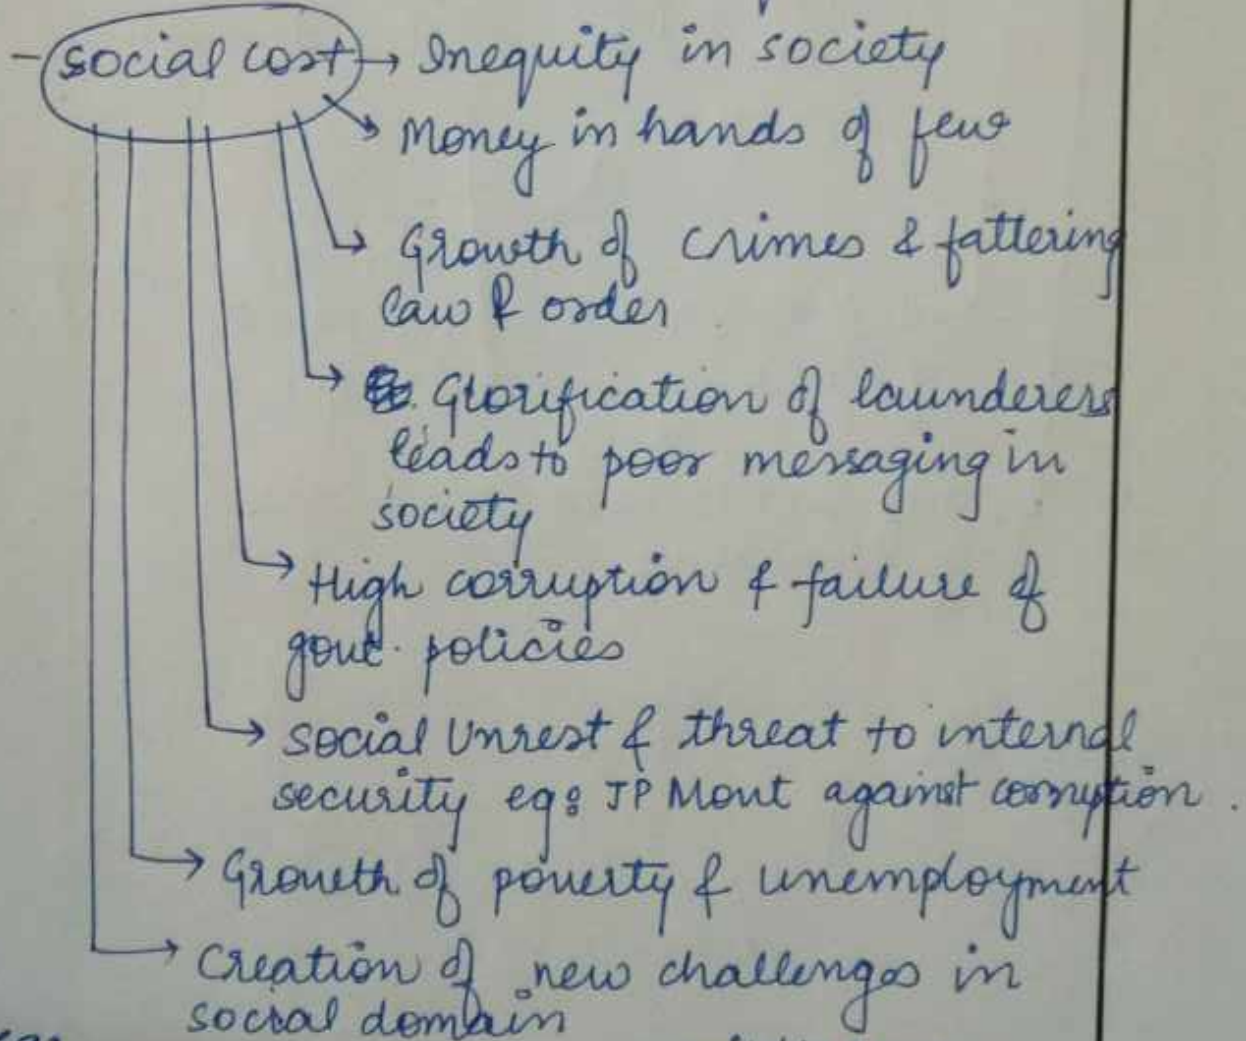 - social cost → Inequity in society
→ Money in hands of few
→ Growth of crimes & fattering
law & order
→ Glorification of launderers
leads to poor messaging in
society
→ High corruption & failure of
govt. policies
→ social Unrest & threat to internal
security eg: JP Mont against corruption.
→ Growth of poverty & unemployment
→ Creation of new challenges in
social domain